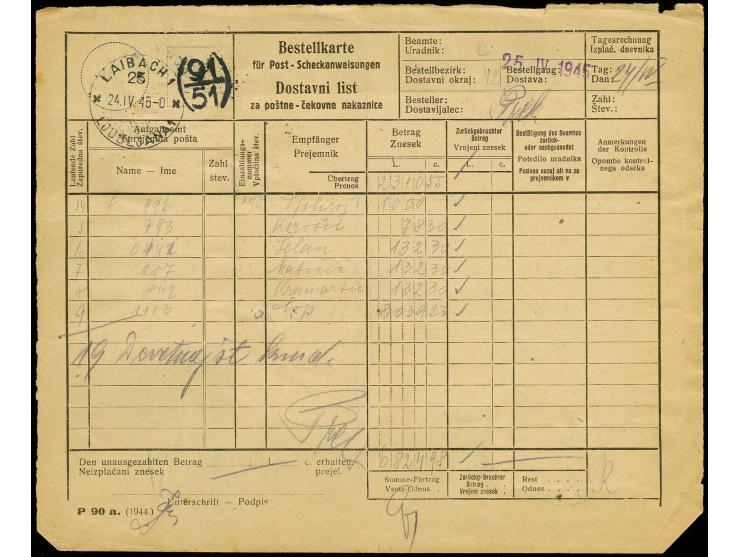 LAIBACH 1
25
24.IV.45-0
LJUBLJANA 1
91
51
Bestellkarte
für Post - Scheckanweisungen
Dostavni list
za poštne - čekovne nakaznice
Beamte:
Uradnik:
25. IV. 1945
Bestellbezirk:
Dostavni okraj:
Bestellgang:
Dostava:
Besteller:
Dostavljalec:
Tagesrechnung
Izplač. dnevnika
Tag:
Dan: 24/IV
Zahl:
Štev.:
Laufende Zahl
Zaporedna štev.
Aufgabeamt
Sprejemna pošta
Name — Ime
Zahl
štev.
Einzahlungs-
nummer
Vplačilna štev.
Empfänger
Prejemnik
Übertrag
Prenos
Betrag
Znesek
L. c.
Zurückgebrachter
Betrag
Vrnjeni znesek
L. c.
Bestätigung des Beamten
zurück-
oder nachgesendet
Potrdilo uradnika
Poslano nazaj ali na za
prejemnikom v
Anmerkungen
der Kontrolle
Opombe kontrol-
nega odseka
231055
14 996 1000
5 793 7830
6 13230
7 207 13230
8 842 13230
9 1113 303923
19
Den unausgezahlten Betrag L c. erhalten,
Neizplačani znesek prejel.
682498
Summe-Fürtrag
Vsota-Odnos
Zurückg-brachter
Betrag
Vrnjeni znesek
Rest
Odnos
Unterschrift - Podpis
P 90 a. (1944.)